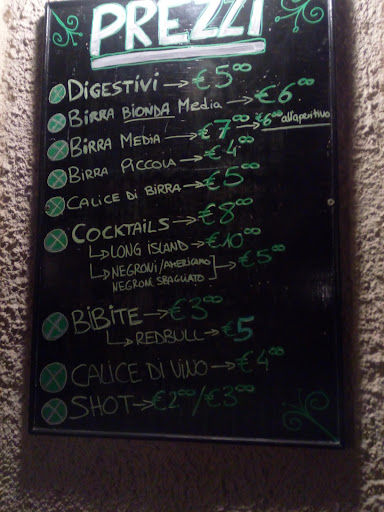 PREZZI
DIGESTIVI → €5⁰⁰
BIRRA BIONDA MEDIA → €6⁰⁰
BIRRA MEDIA → €7⁰⁰ → €6⁰⁰ all'aperitivo
BIRRA PICCOLA → €4⁰⁰
CALICE DI BIRRA → €5⁰⁰
COCKTAILS → €8⁰⁰
↳ LONG ISLAND → €10⁰⁰
↳ NEGRONI/AMERICANO → €5⁰⁰
NEGRONI SBAGLIATO
BIBITE → €3⁰⁰
↳ REDBULL → €5
CALICE DI VINO → €4⁰⁰
SHOT → €2⁰⁰/€3⁰⁰